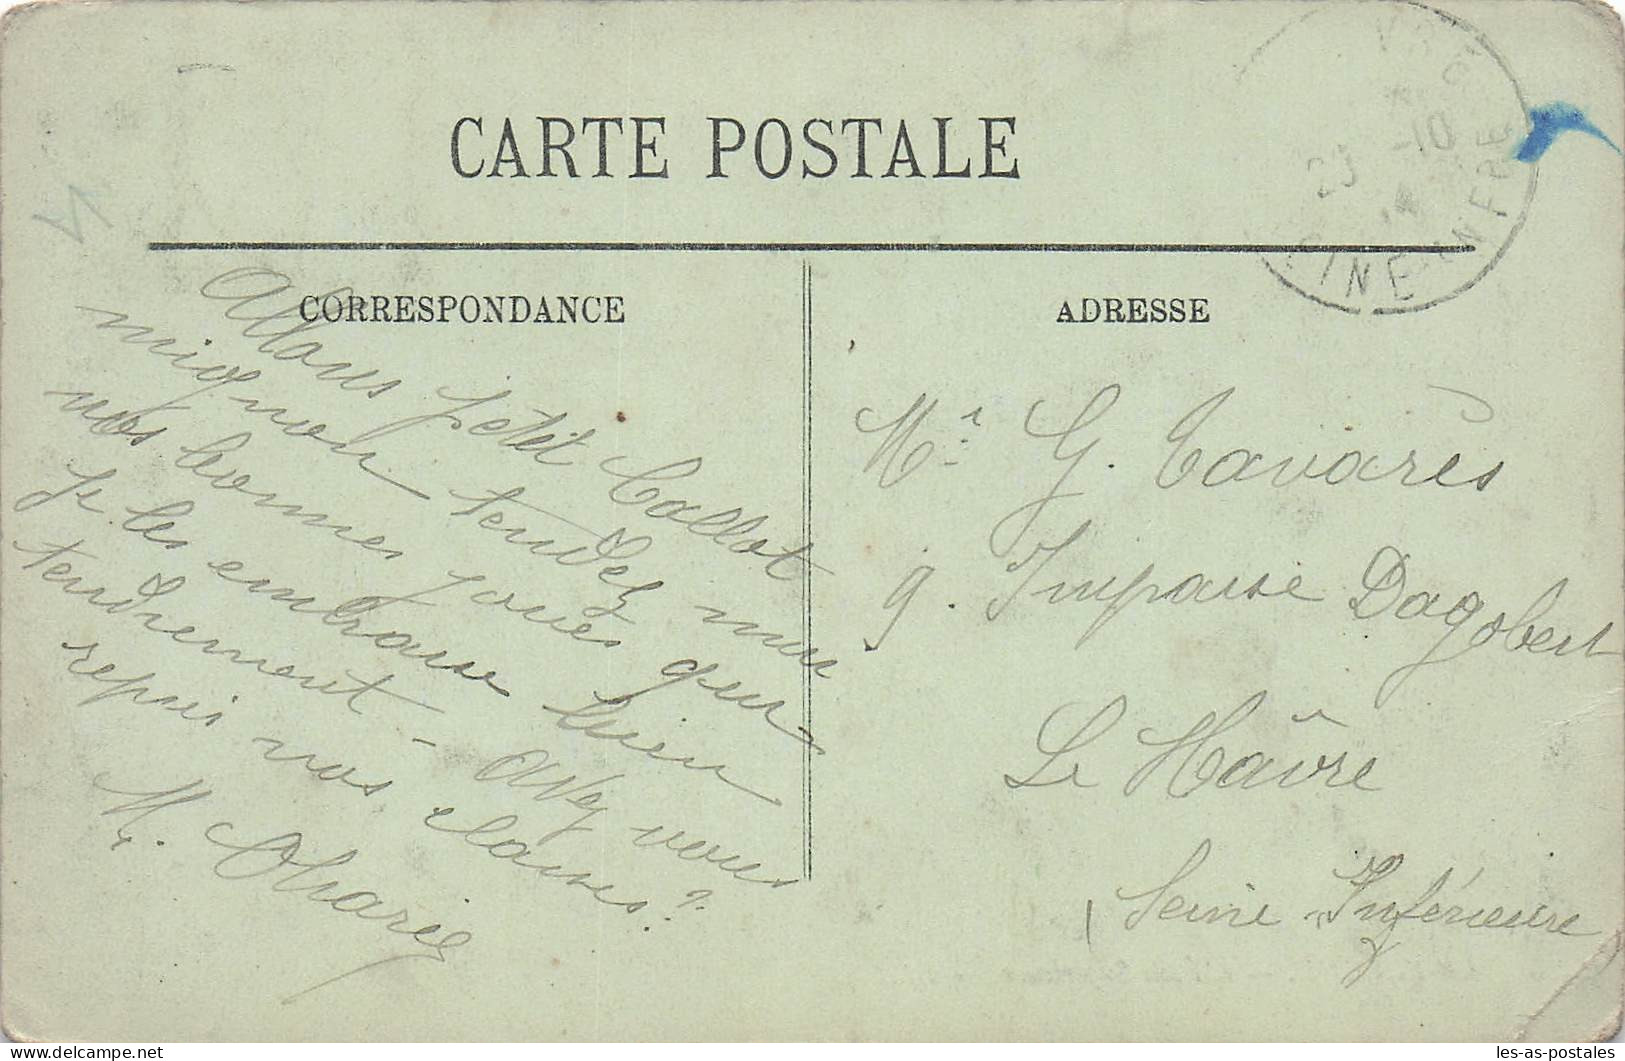 CARTE POSTALE
CORRESPONDANCE
Allons petit Callot
mignon tendez moi
vos bonnes joues que
je les embrasse bien
tendrement - Avez vous
repris vos classes?
M.
ADRESSE
Mr. G. Tavarès
9. Impasse Dagobert
Le Hâvre
Seine Inférieure
-10
SEINE INFRE
les-as-postales